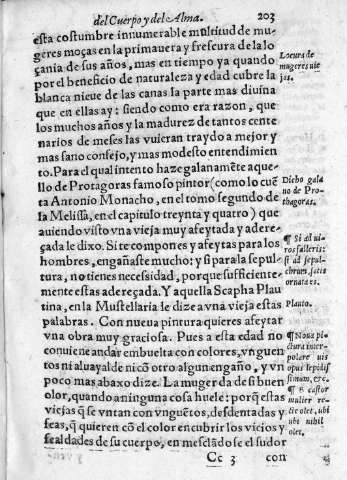 del Cuerpo y del Alma. 203
esta costumbre innumerable multitud de mu-
geres moças en la primauera y frescura de la lo
çania de sus años, mas en tiempo ya quando
por el beneficio de naturaleza y edad cubre la
blanca nieue de las canas la parte mas diuina
que en ellas ay: siendo como era razon, que
los muchos años y la madurez de tantos cente
narios de meses las vuieran traydo a mejor y
mas sano consejo, y mas modesto entendimien
to. Para el qual intento haze galanamẽte aque-
llo de Protagoras famoso pintor (como lo cuẽ
ta Antonio Monacho, en el tomo segundo de
la Melissa, en el capitulo treynta y quatro) que
auiendo visto vna vieja muy afeytada y adere-
çada le dixo. Si te compones y afeytas para los
hombres, engañaste mucho: y si para la sepul-
tura, no tienes necessidad, porque sufficiente-
mente estas adereçada. Y aquella Scapha Plau
tina, en la Mustellaria le dize a vna vieja estas
palabras. Con nueva pintura quieres afeytar
vna obra muy graciosa. Pues a esta edad no
conuiene andar embuelta con colores, vnguen
tos ni aluayalde ni cõ otro algun engaño, y vn
poco mas abaxo dize. La muger da de si buen
olor, quando a ninguna cosa huele: porq̃ estas
viejas q̃ se vntan con vnguẽtos, desdentadas y
feas, q̃ quieren cõ el color encubrir los vicios y
fealdades de su cuerpo, en mesclãdo se el sudor
Cc 3 con
Locura de
mugeres vie
jas.
Dicho gala
no de Pro-
thagoras.
¶ Si ad ui-
ros falleris:
si ad sepul-
chrum, satis
ornata es.
Plauto.
¶ Noua pi-
ctura inter-
polere uis
opus lepidis
simum, &c.
¶ E castor
mulier re-
cte olet, ubi
ubi nihil
olet.